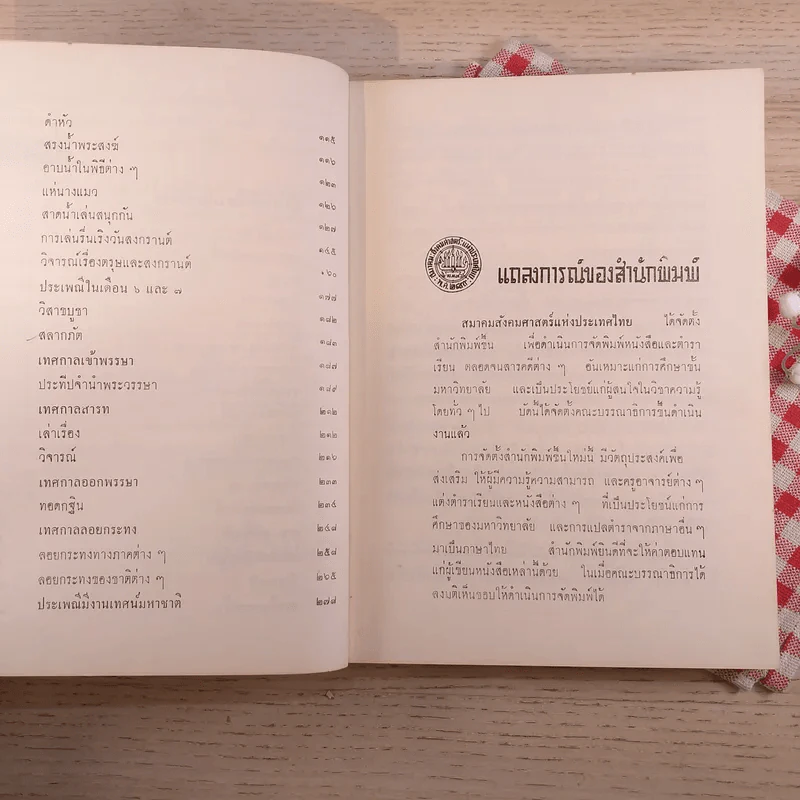 ดำหัว ๑๑๕
สรงน้ำพระสงฆ์ ๑๑๖
อาบน้ำในพิธีต่าง ๆ ๑๒๓
แห่นางแมว ๑๒๖
สาดน้ำเล่นสนุกกัน ๑๒๗
การเล่นรื่นเริงวันสงกรานต์ ๑๔๕
วิจารณ์เรื่องตรุษและสงกรานต์
ประเพณีในเดือน ๖ และ ๗ ๑๗๗
วิสาขบูชา ๑๘๒
สลากภัต ๑๘๓
เทศกาลเข้าพรรษา ๑๘๗
ประทีปจำนำพระวรรษา ๑๘๙
เทศกาลสารท ๒๑๒
เล่าเรื่อง ๒๑๒
วิจารณ์ ๒๑๖
เทศกาลออกพรรษา ๒๓๓
ทอดกฐิน ๒๓๔
เทศกาลลอยกระทง
ลอยกระทงทางภาคต่าง ๆ
ลอยกระทงของชาติต่าง ๆ ๒๖๕
ประเพณีมีงานเทศน์มหาชาติ ๒๗๗
แถลงการณ์ของสำนักพิมพ์
สมาคมสังคมศาสตร์แห่งประเทศไทย ได้จัดตั้ง
สำนักพิมพ์ขึ้น เพื่อดำเนินการจัดพิมพ์หนังสือและตำรา
เรียน ตลอดจนสารคดีต่าง ๆ อันเหมาะแก่การศึกษาชั้น
มหาวิทยาลัย และเป็นประโยชน์แก่ผู้สนใจในวิชาความรู้
โดยทั่ว ๆ ไป บัดนี้ได้จัดตั้งคณะบรรณาธิการขึ้นดำเนิน
งานแล้ว
การจัดตั้งสำนักพิมพ์ขึ้นใหม่นี้ มีวัตถุประสงค์เพื่อ
ส่งเสริม ให้ผู้มีความรู้ความสามารถ และครูอาจารย์ต่าง ๆ
แต่งตำราเรียนและหนังสือต่าง ๆ ที่เป็นประโยชน์แก่การ
ศึกษาของมหาวิทยาลัย และการแปลตำราจากภาษาอื่น ๆ
มาเป็นภาษาไทย สำนักพิมพ์ยินดีที่จะให้ค่าตอบแทน
แก่ผู้เขียนหนังสือเหล่านี้ด้วย ในเมื่อคณะบรรณาธิการได้
ลงมติเห็นชอบให้ดำเนินการจัดพิมพ์ได้